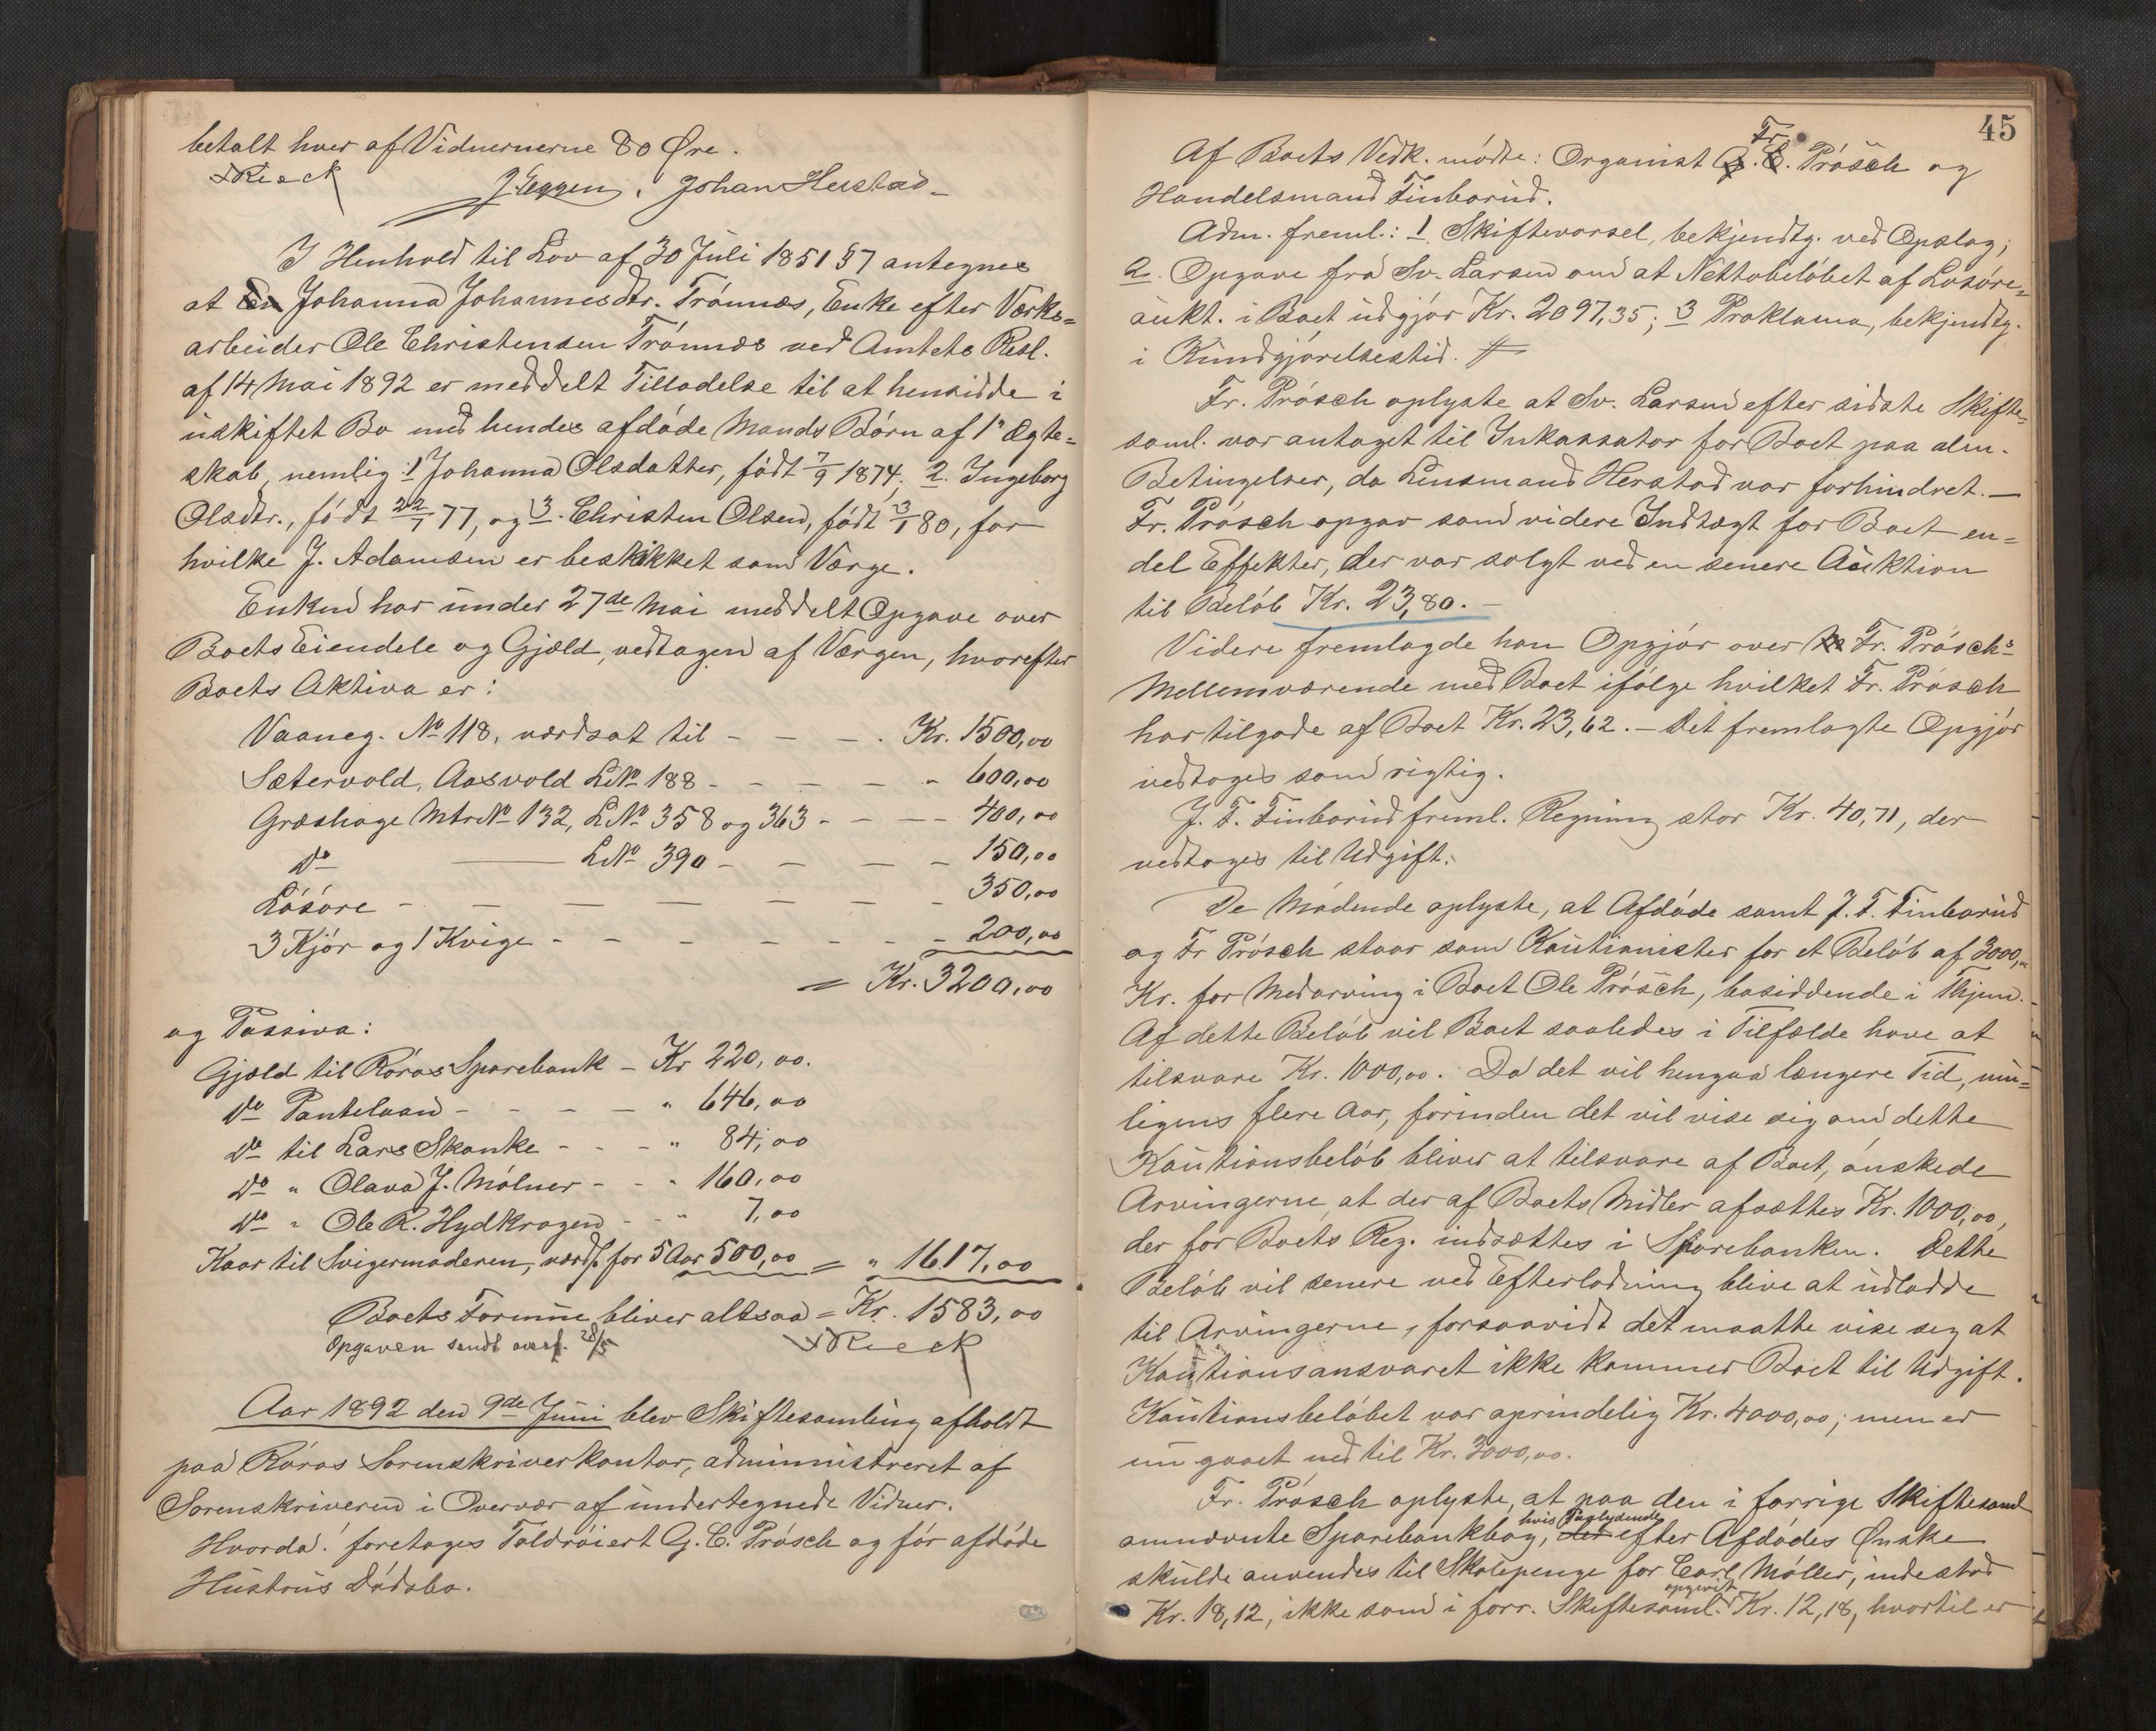 betalt hver af Vidnernerne 80 Øre.
Rieck
J. Eggen. Johan Herstad
I Henhold til Lov af 30 Juli 1851 § 7 antegnes
at Johanna Johannesdtr. Trønnes, Enke efter Værks=
arbeider Ole Christensen Trønnes ved Amtets Resl.
af 14 Mai 1892 er meddelt Tilladelse til at hensidde i
uskiftet Bo med hendes afdøde Mands Børn af 1ste Ægte=
skab, nemlig: 1 Johanna Olsdatter, født 7/9 1874, 2. Ingeborg
Olsdtr., født 22/1 77, og 3. Christen Olsen, født 3/1 80, for
hvilke J. Adamsen er beskikket som Værge.
Enken har under 27de Mai meddelt Opgave over
Boets Eiendele og Gjæld, vedtagen af Værgen, hvorefter
Boets Aktiva er:
Vaaneg. No 118, værdsat til - - - . Kr. 1500,00
Sætervold, Aasvold LNo 188 - - - - - " 600,00
Græshage MtrNo 132, LNo 358 og 363 - - - - 400,00
Do LNo 390 - - - - 150,00
Løsøre - - - - - - - 350,00
3 Kjør og 1 Kvige - - - - - - - 200,00
= Kr. 3200,00
og Passiva:
Gjæld til Røros Sparebank - Kr 220,00.
Do Pantelaan - - - - " 646,00
Do til Lars Skanke - - - " 84,00
Do " Olava J. Mølner - - " 160,00
Do " Ole R. Hydkrogen - - " 7,00
Kaar til Svigermoderen, værds. for 5 Aar 500,00 = " 1617,00
Boets Formue bliver altsaa = Kr. 1583,00
Opgaven sendt overf. 28/5
Rieck
Aar 1892 den 9de Juni blev Skiftesamling afholdt
paa Røros Sorenskriverkontor, administreret af
Sorenskriveren i Overvær af undertegnede Vidner.
Hvorda: foretages Toldrøiert G. C. Prøsch og før afdøde
Hustrus Dødsbo.
45
Af Boets Vedk. mødte: Organist Fr. Prøsch og
Handelsmand Finborud.
Adm. freml.: 1. Skiftevarsel, bekjendtg. ved Opslag;
2. Opgave fra Sv. Larsen om at Nettobeløbet af Løsøre=
aukt. i Boet udgjør Kr. 2097,35; 3 Proklama, bekjendtg.
i Kundgjørelsestid.
Fr. Prøsch oplyste at Sv. Larsen efter sidste Skifte=
saml. var antaget til Inkassator for Boet paa alm.
Betingelser, da Lensmand Herstad var forhindret. —
Fr. Prøsch opgav som videre Indtægt for Boet en=
del Effekter, der var solgt ved en senere Auktion
til Beløb Kr. 23,80. —
Videre fremlagde han Opgjør over Fr. Prøsch's
Mellemværende med Boet ifølge hvilket Fr. Prøsch
har tilgode af Boet Kr. 23,62. — Det fremlagte Opgjør
vedtoges som rigtig.
J. F. Finborud freml. Regning stor Kr. 40,71, der
vedtoges til Udgift.
De Mødende oplyste, at Afdøde samt J. F. Finborud
og Fr Prøsch staar som Kautionister for et Beløb af 3000,00
Kr. for Medarving i Boet Ole Prøsch, bosiddende i Thjem.
Af dette Beløb vil Boet saaledes i Tilfælde have at
tilsvare Kr. 1000,00. Da det vil hengaa længere Tid, rim=
ligens flere Aar, forinden det vil vise sig om dette
Kautionsbeløb bliver at tilsvare af Boet, ønskede
Arvingerne, at der af Boets Midler afsættes Kr. 1000,00,
der for Boets Reg. indsættes i Sparebanken. Dette
Beløb vil senere ved Efterlodning blive at udlodde
til Arvingerne, forsaavidt det maatte vise sig at
Kautionsansvaret ikke kommer Boet til Udgift.
Kautionsbeløbet var oprindelig Kr. 4000,00; men er
nu gaaet ned til Kr. 3000,00.
Fr. Prøsch oplyste, at paa den i forrige Skiftesaml
omnævnte Sparebankbog, hvis Paalydende efter Afdødes Ønske
skulde anvendes til Skolepenge for Carl Møller, indestod
Kr. 18,12, ikke som i forr. Skiftesaml. opgivet Kr. 12,18, hvortil er